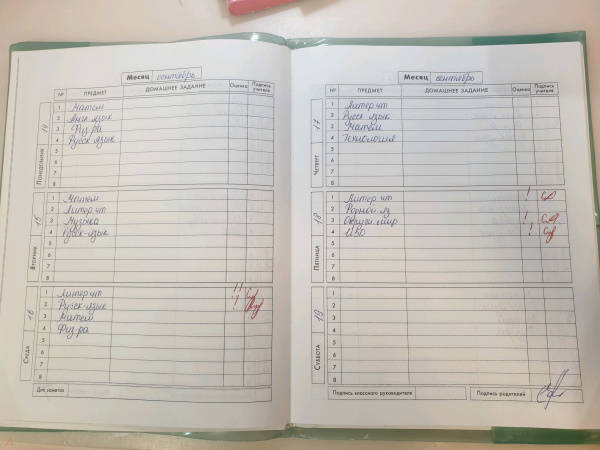 Месяц сентябрь
№ ПРЕДМЕТ ДОМАШНЕЕ ЗАДАНИЕ Оценка Подпись учителя
Понедельник 14
1 Матем
2 Англ-язык
3 Физ-ра
4 Русск-язык
5
6
7
8
Вторник 15
1 Матем
2 Литер чт
3 Музыка
4 Русск-язык
5
6
7
8
Среда 16
1 Литер чт !!
2 Русск-язык !
3 Матем
4 Физ-ра
5
6
7
8
Для заметок
Месяц сентябрь
№ ПРЕДМЕТ ДОМАШНЕЕ ЗАДАНИЕ Оценка Подпись учителя
Четверг 17
1 Литер чт
2 Русск язык
3 Матем
4 Технология
5
6
7
8
Пятница 18
1 Литер чт !
2 Родной яз
3 Окруж-мир !
4 ИЗО !
5
6
7
8
Суббота 19
1
2
3
4
5
6
7
8
Подпись классного руководителя Подпись родителей